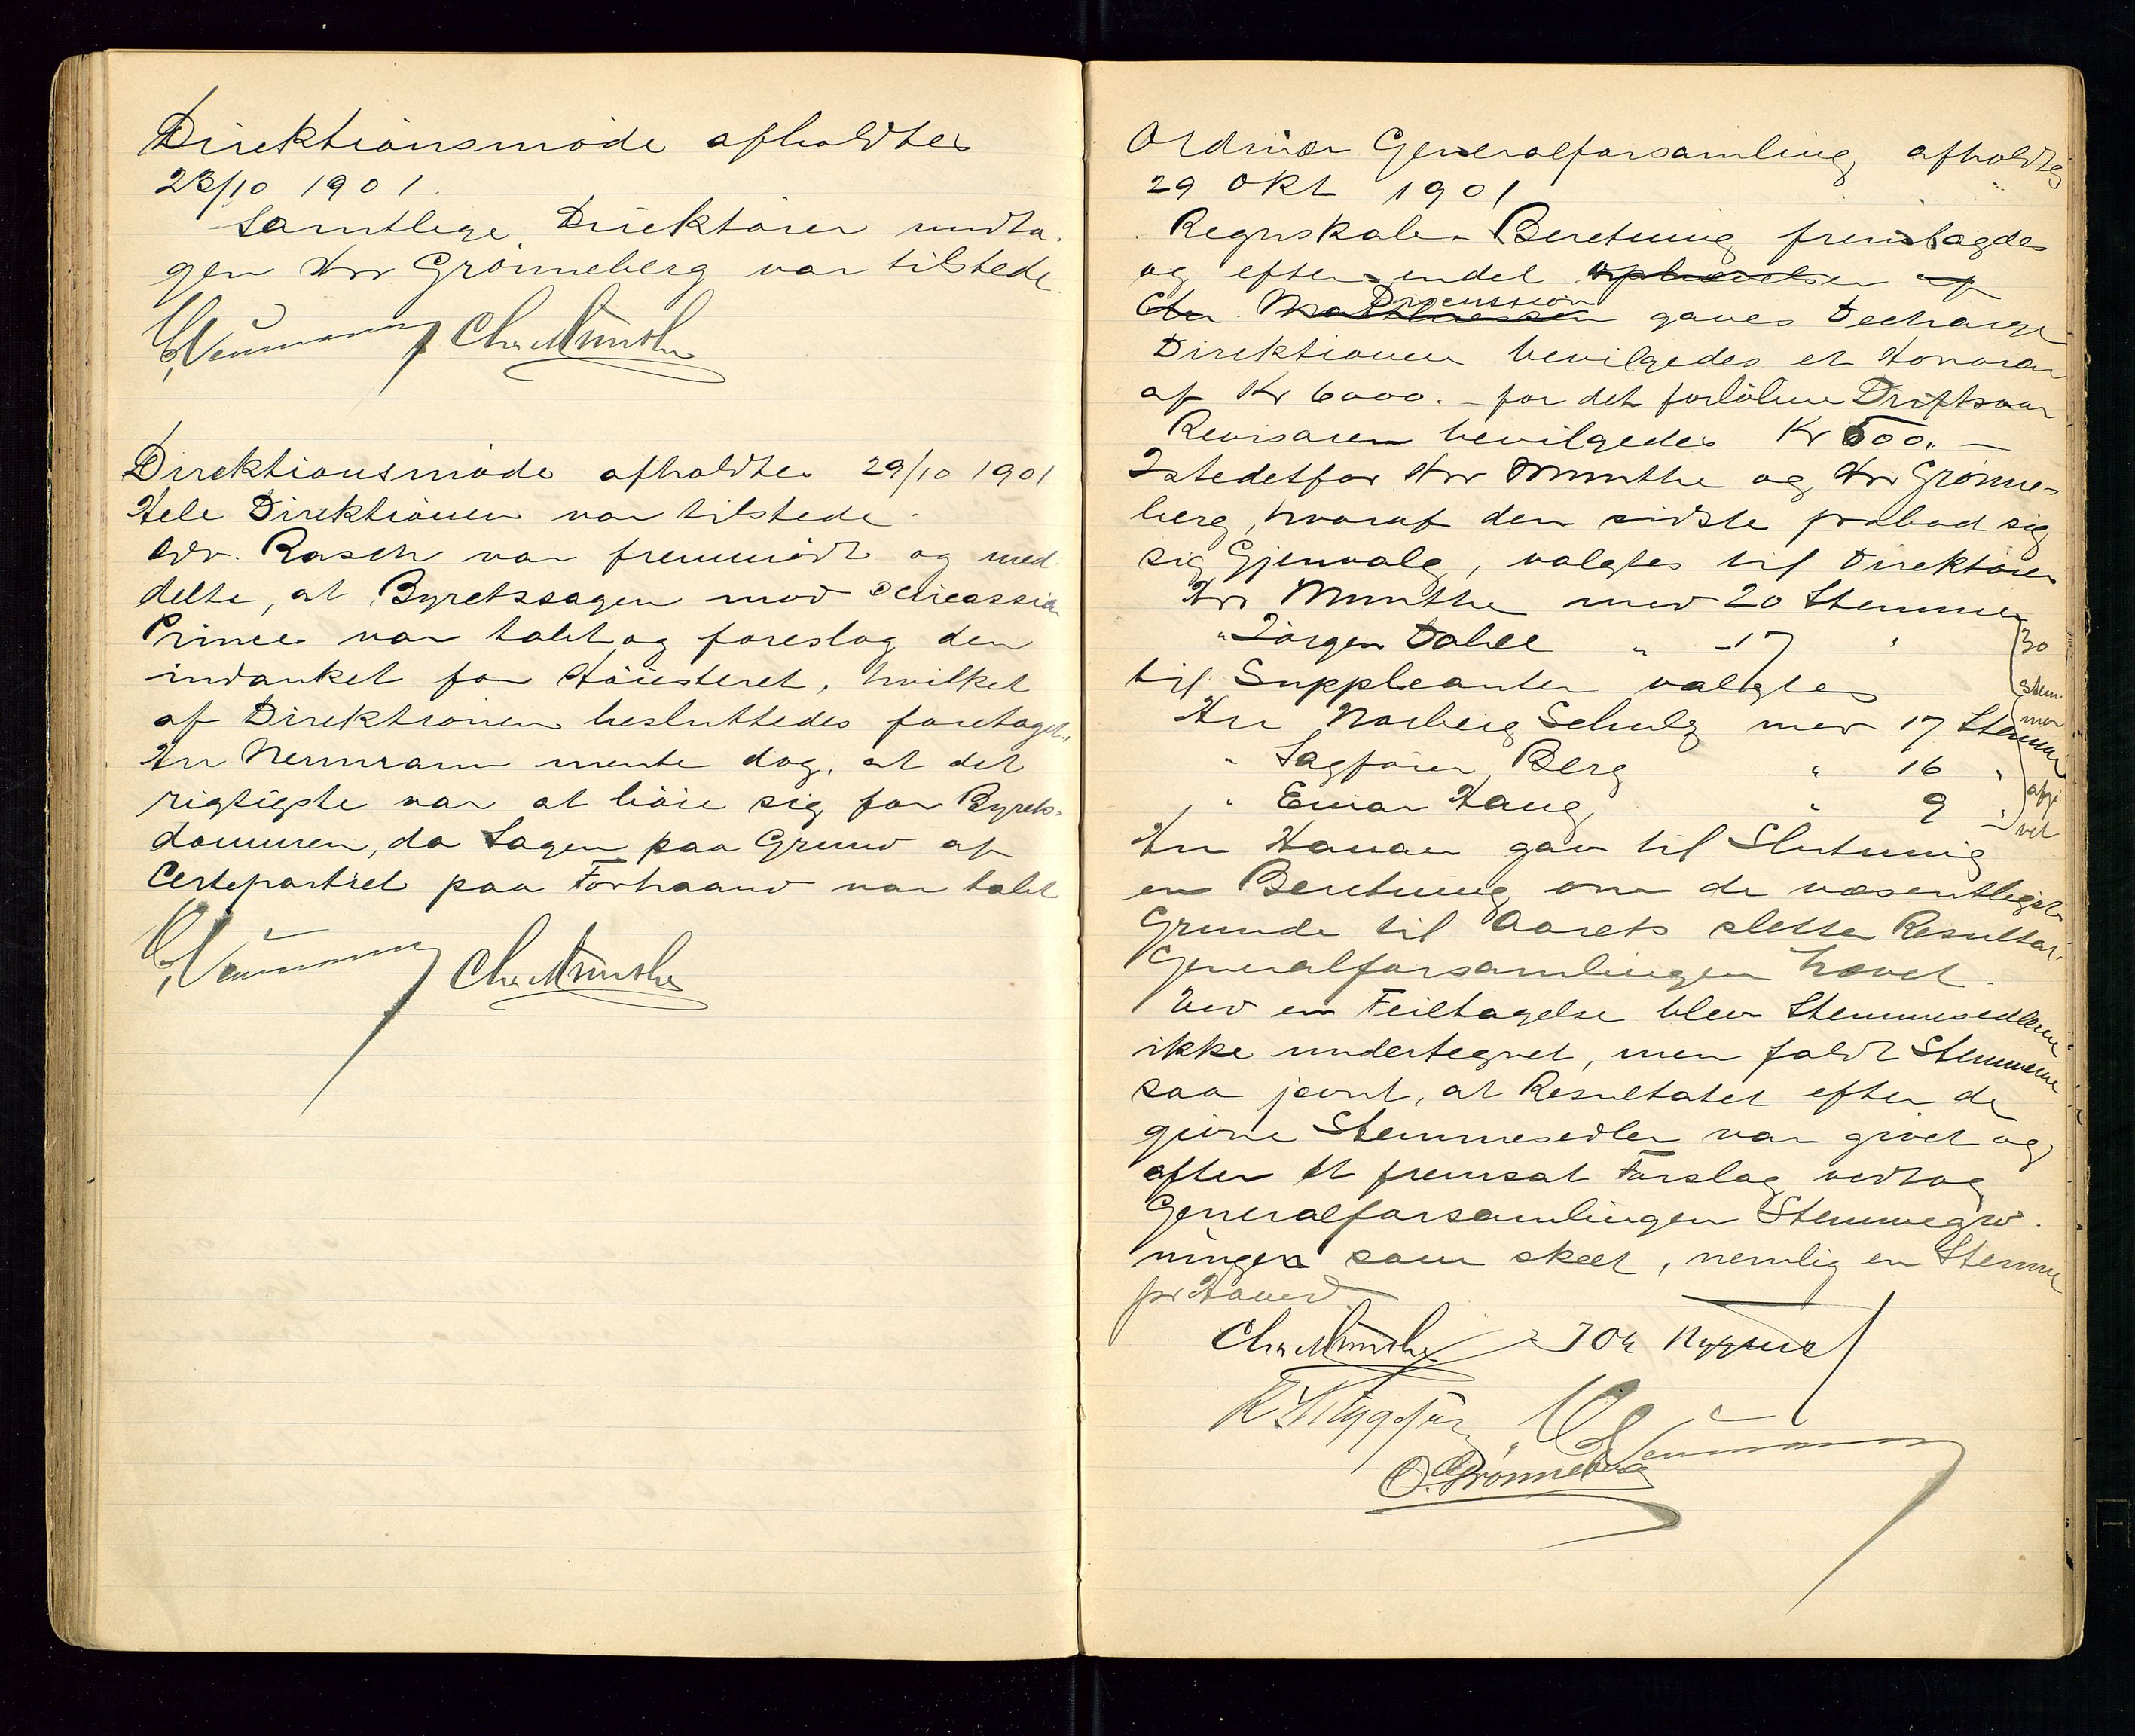 Direktionsmöde afholdtes
23/10 1901.
Samtlige Direktörer undta-
gen Hrr Grönneberg var tilstede.
Neumann Chr Munthe
Direktionsmöde afholdtes 29/10 1901
Hele Direktionen var tilstede.
Adv. Rasch var fremmödt og med-
delte, at Byretssagen mod Circassian
Prince var tabt og foreslog den
indanket for Höiesteret, hvilket
af Direktionen besluttedes foretaget.
Hrr Neumann mente dog, at det
rigtigste var at böie sig for Byrets-
dommen, da Sagen paa Grund af
Certepartiet paa Forhaand var tabt
Neumann Chr Munthe
Ordinær Generalforsamling afholdtes
29 Okt 1901
Regnskab & Beretning fremlagdes
og efter endel oplævelser af
Discussion
gaves Decharge
Direktionen bevilgedes et Honorar
af Kr 6000.- for det forlöbne Driftsaar
Revisoren bevilgedes Kr 500.-
Istedetfor Hrr Munthe og Hrr Grönne-
berg, hvoraf den sidste frabad sig
sig Gjenvalg, valgtes til Direktörer
Hrr Munthe med 20 Stemmer
" Jörgen Dahll " 17 "
til Suppleanter valgtes
Hrr Norberg Schulz med 17 Stemmer
" Sagförer Berg " 16 "
" Einar Haug " 9 "
30
stem-
mer
afgi
vet
Hrr Hannan gav til Slutning
en Beretning om de væsentligste
Grunde til Aarets slette Resultat.
Generalforsamlingen hævet.
Ved en Feiltagelse blev Stemmesedlerne
ikke undertegnet, men faldt Stemmerne
saa jevnt, at Resultatet efter de
givne Stemmesedler var givet og
efter et fremsat Forslag vedtog
Generalforsamlingen Stemmegiv-
ningen som skeet, nemlig en Stemme
pr Hoved.
Chr Munthe Joh Nygren
Neumann
O. Grönneberg